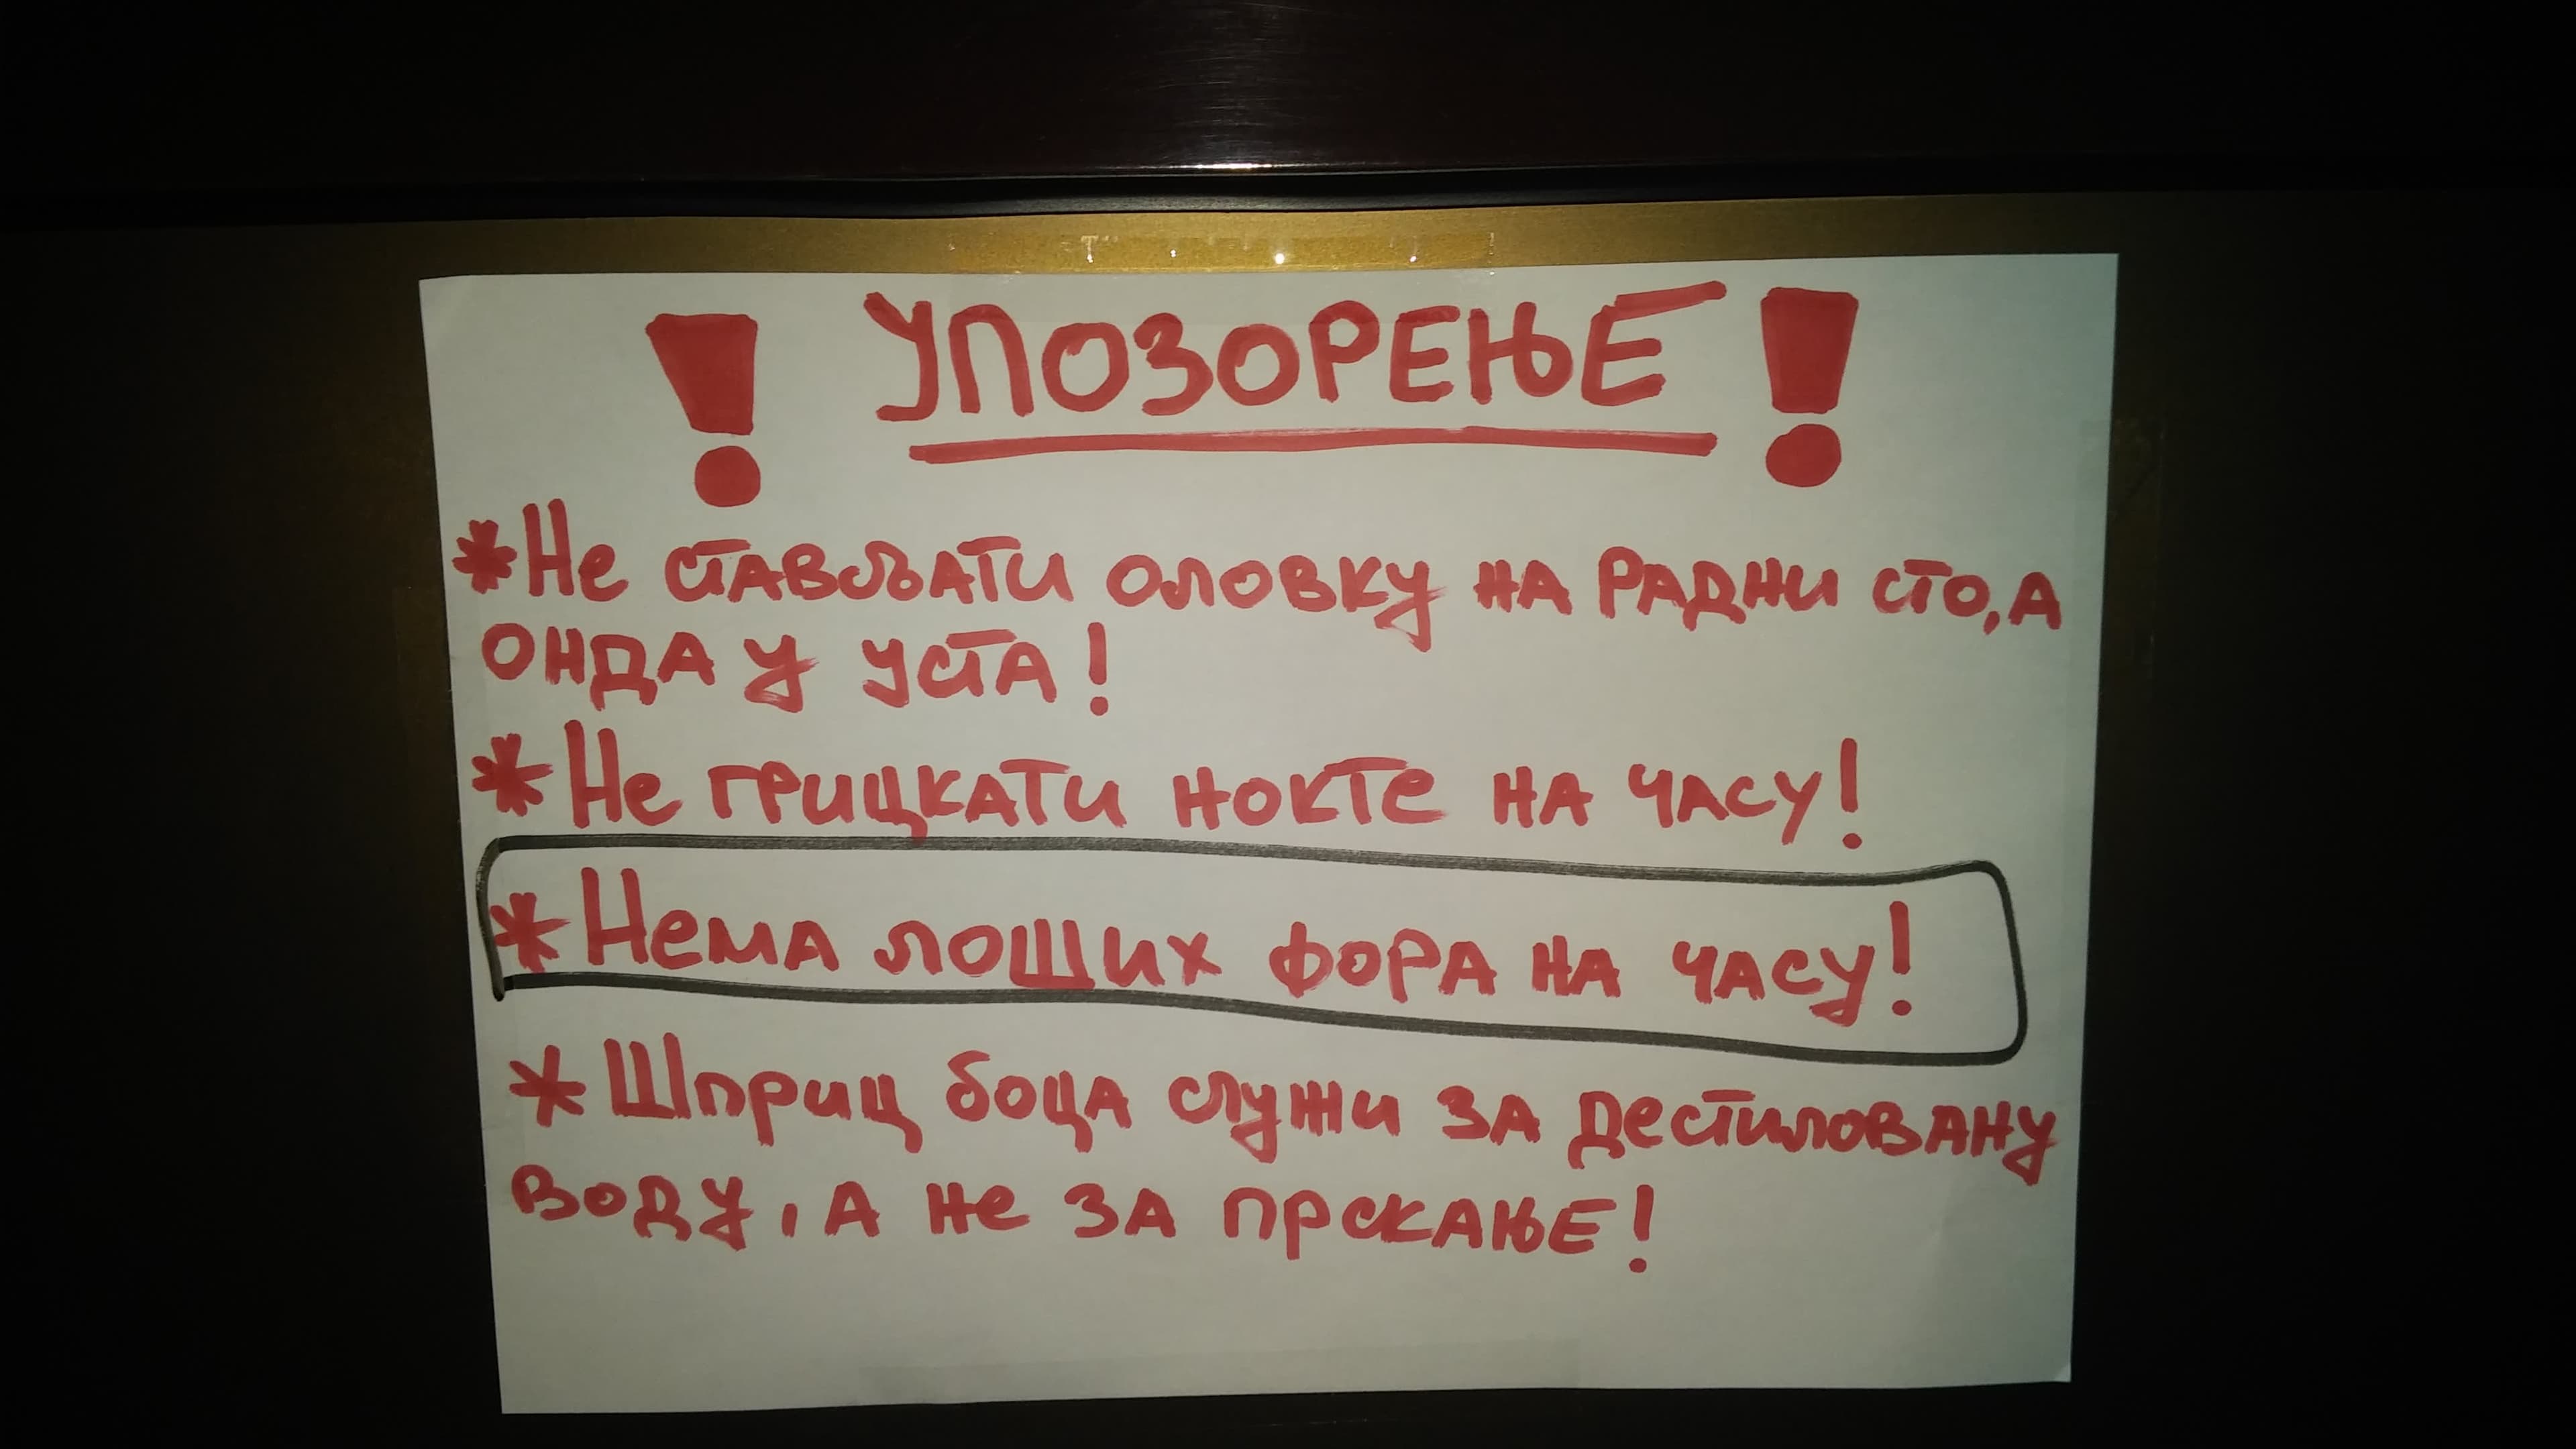 ! УПОЗОРЕЊЕ !
*Не стављати оловку на радни сто, а
онда у уста!
*Не грицкати нокте на часу!
*Нема лоших фора на часу!
*Шприц боца служи за дестиловану
воду, а не за прскање!